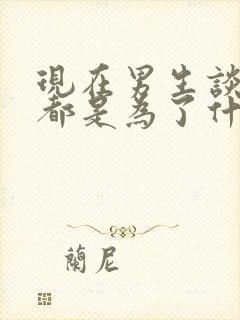 現在男生談
都是為了什
蘭尼